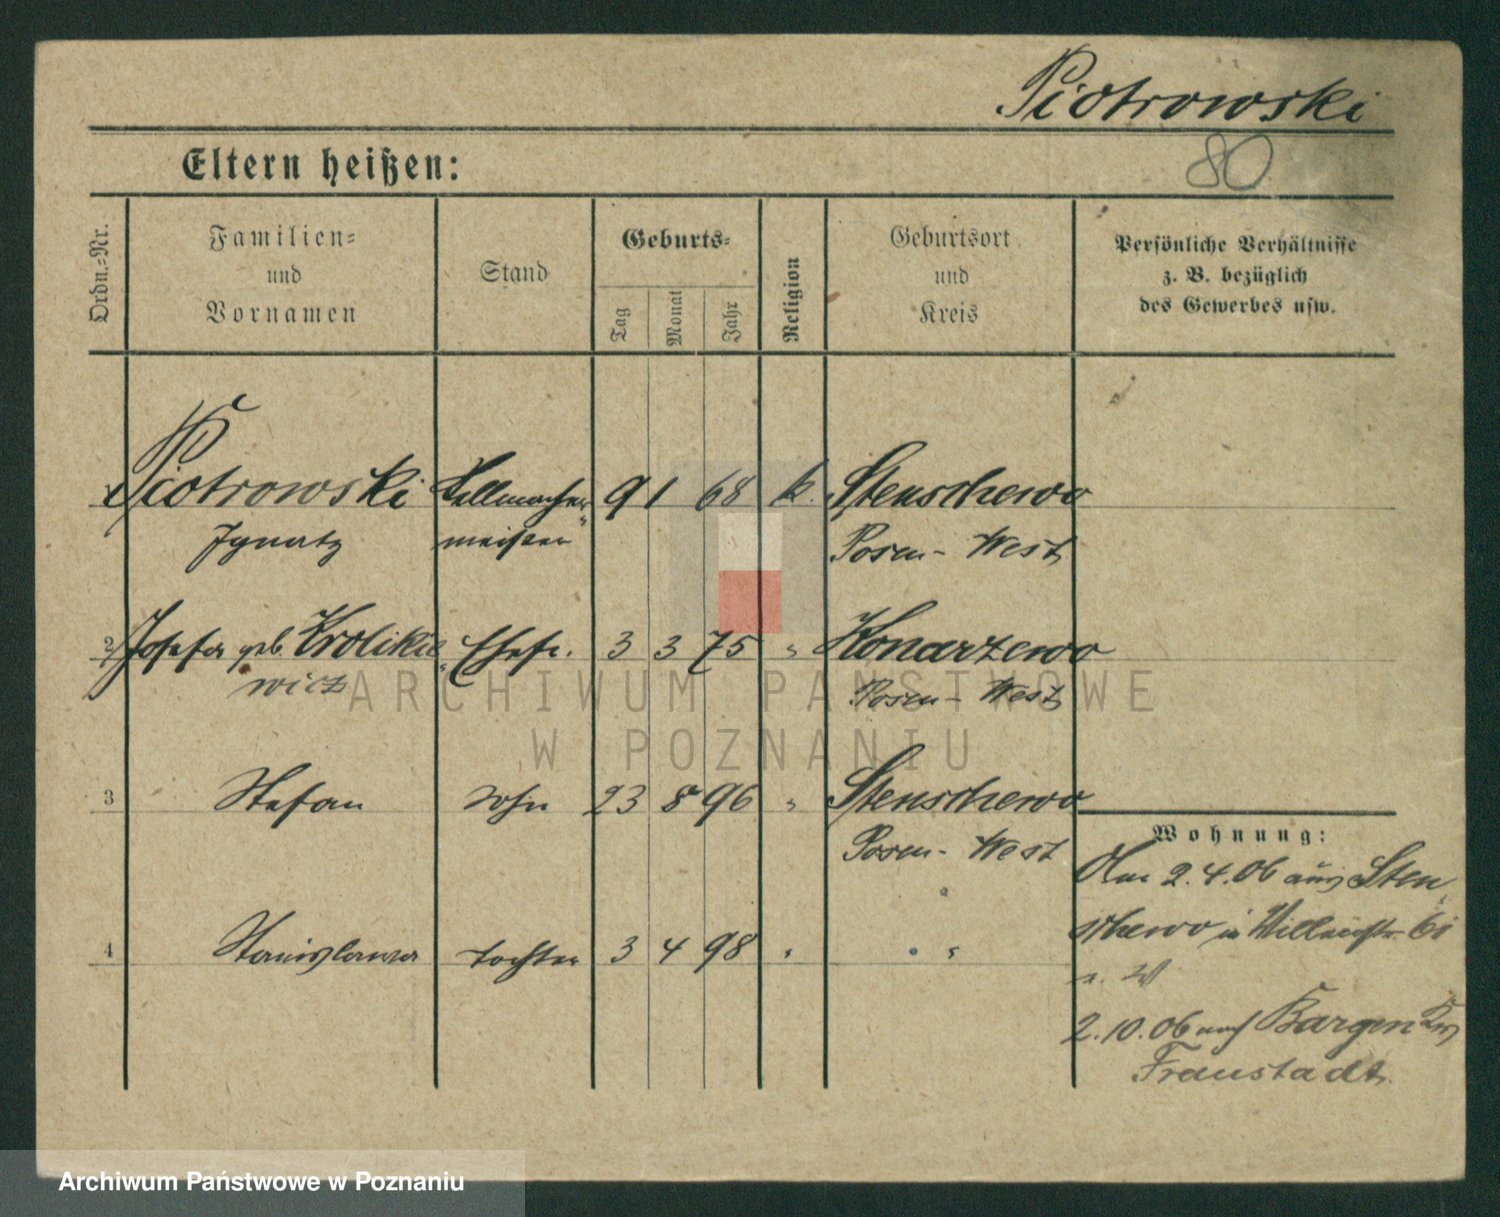 Piotrowski
80
Eltern heißen:
Ordn.=Nr.
Familien=
und
Vornamen
Stand
Geburts=
Tag
Monat
Jahr
Religion
Geburtsort
und
Kreis
Persönliche Verhältnisse
z. B. bezüglich
des Gewerbes usw.
1 Piotrowski Stellmacher= 9 1 68 k. Stenschewo
Ignatz meister Posen - West
2 Josefa geb. Krolikie= Ehefr. 3 3 75 " Konarzewo
wicz Posen - West
3 Stefan Sohn 23 8 96 " Stenschewo
Posen - West
4 Stanislawa Tochter 3 4 98 " " "
Wohnung:
Am 2.4.06 aus Sten=
schewo in
2.10.06 nach Bargen Krs
Fraustadt.
ARCHIWUM PAŃSTWOWE
W POZNANIU
Archiwum Państwowe w Poznaniu